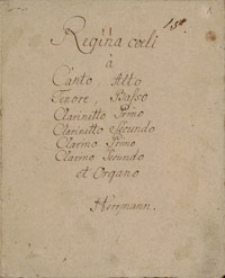 150.
Regina cœli
à
Canto, Alto
Tenore, Basso
Clarinetto Primo
Clarinetto Secundo
Clarino Primo
Clarino Secundo
et Organo
Herrmann.